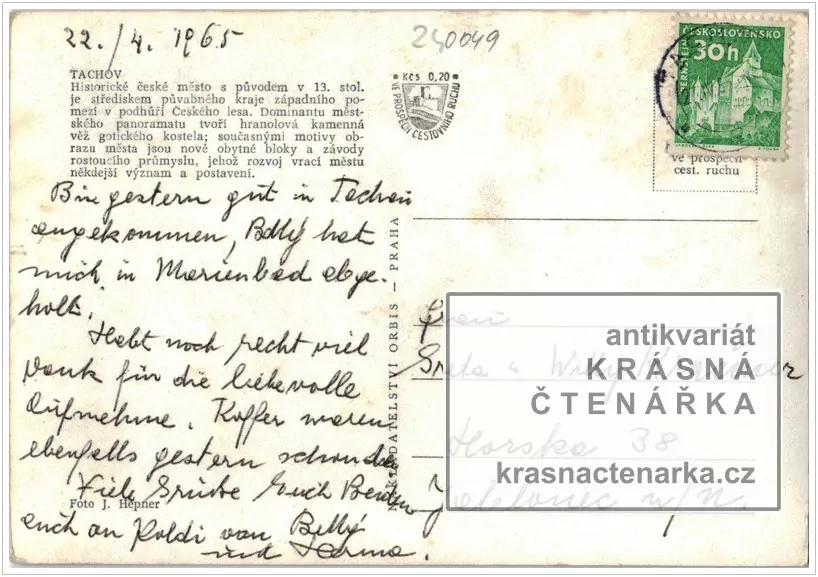 22./4. 1965
240049
TACHOV
Historické české město s původem v 13. stol.
je střediskem půvabného kraje západního po-
mezí v podhůří Českého lesa. Dominantu měst-
ského panoramatu tvoří hranolová kamenná
věž gotického kostela; současnými motivy ob-
razu města jsou nové obytné bloky a závody
rostoucího průmyslu, jehož rozvoj vrací městu
někdejší význam a postavení.
Kčs 0,20
VE PROSPĚCH CESTOVNÍHO RUCHU
ČESKOSLOVENSKO
30h
ve prospěch
cest. ruchu
Bin gestern gut in Tachau
angekommen, Bellý hat
mich in Marienbad abge-
holt.
Habt noch recht viel
Dank für die liebevolle
Aufnahme. Koffer waren
ebenfalls gestern schon da
Viele Grüsse Euch Beiden
auch an Poldi von Bellý
und Herma.
Foto J. Hepner
NAKLADATELSTVÍ ORBIS — PRAHA
Frau
Greta u Willy
Horska 38
Jablonec n/N.
antikvariát
KRÁSNÁ
ČTENÁŘKA
krasnactenarka.cz